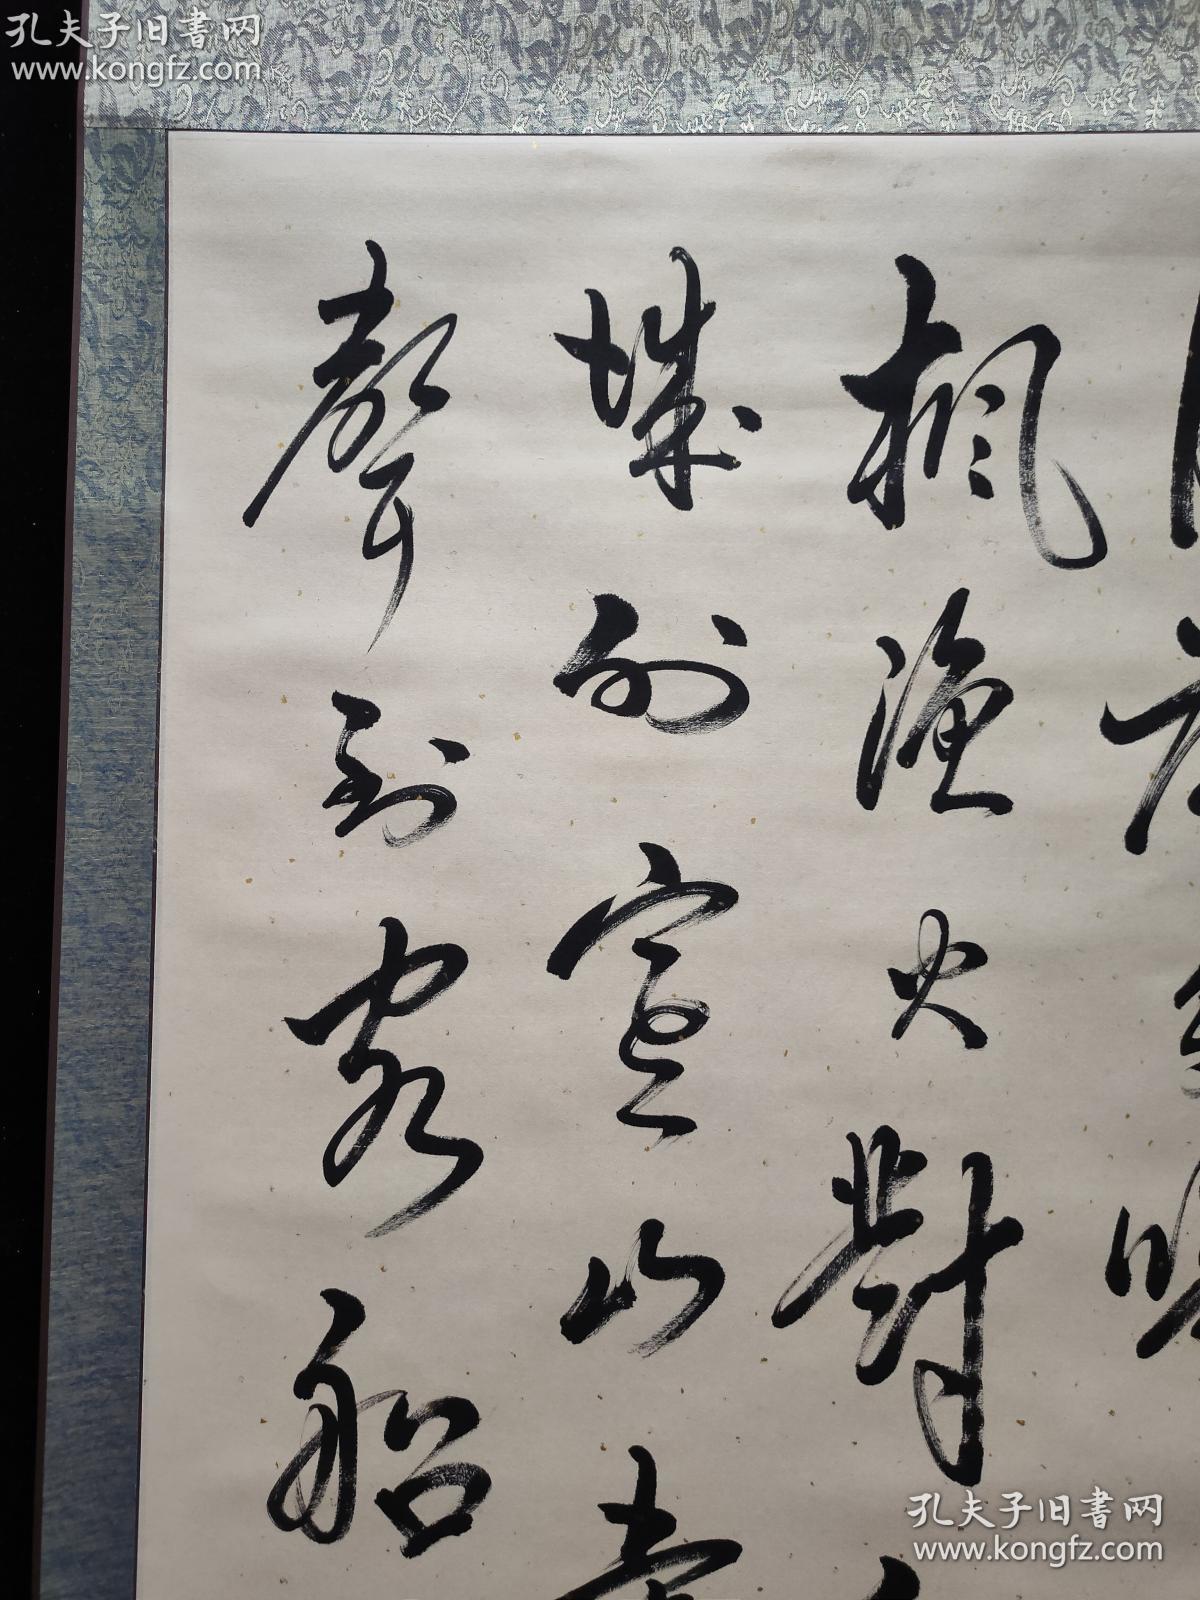 孔夫子旧書网
www.kongfz.com
楓漁火對
城外寒山寺
聲到客船
孔夫子旧書网
www.kongfz.com